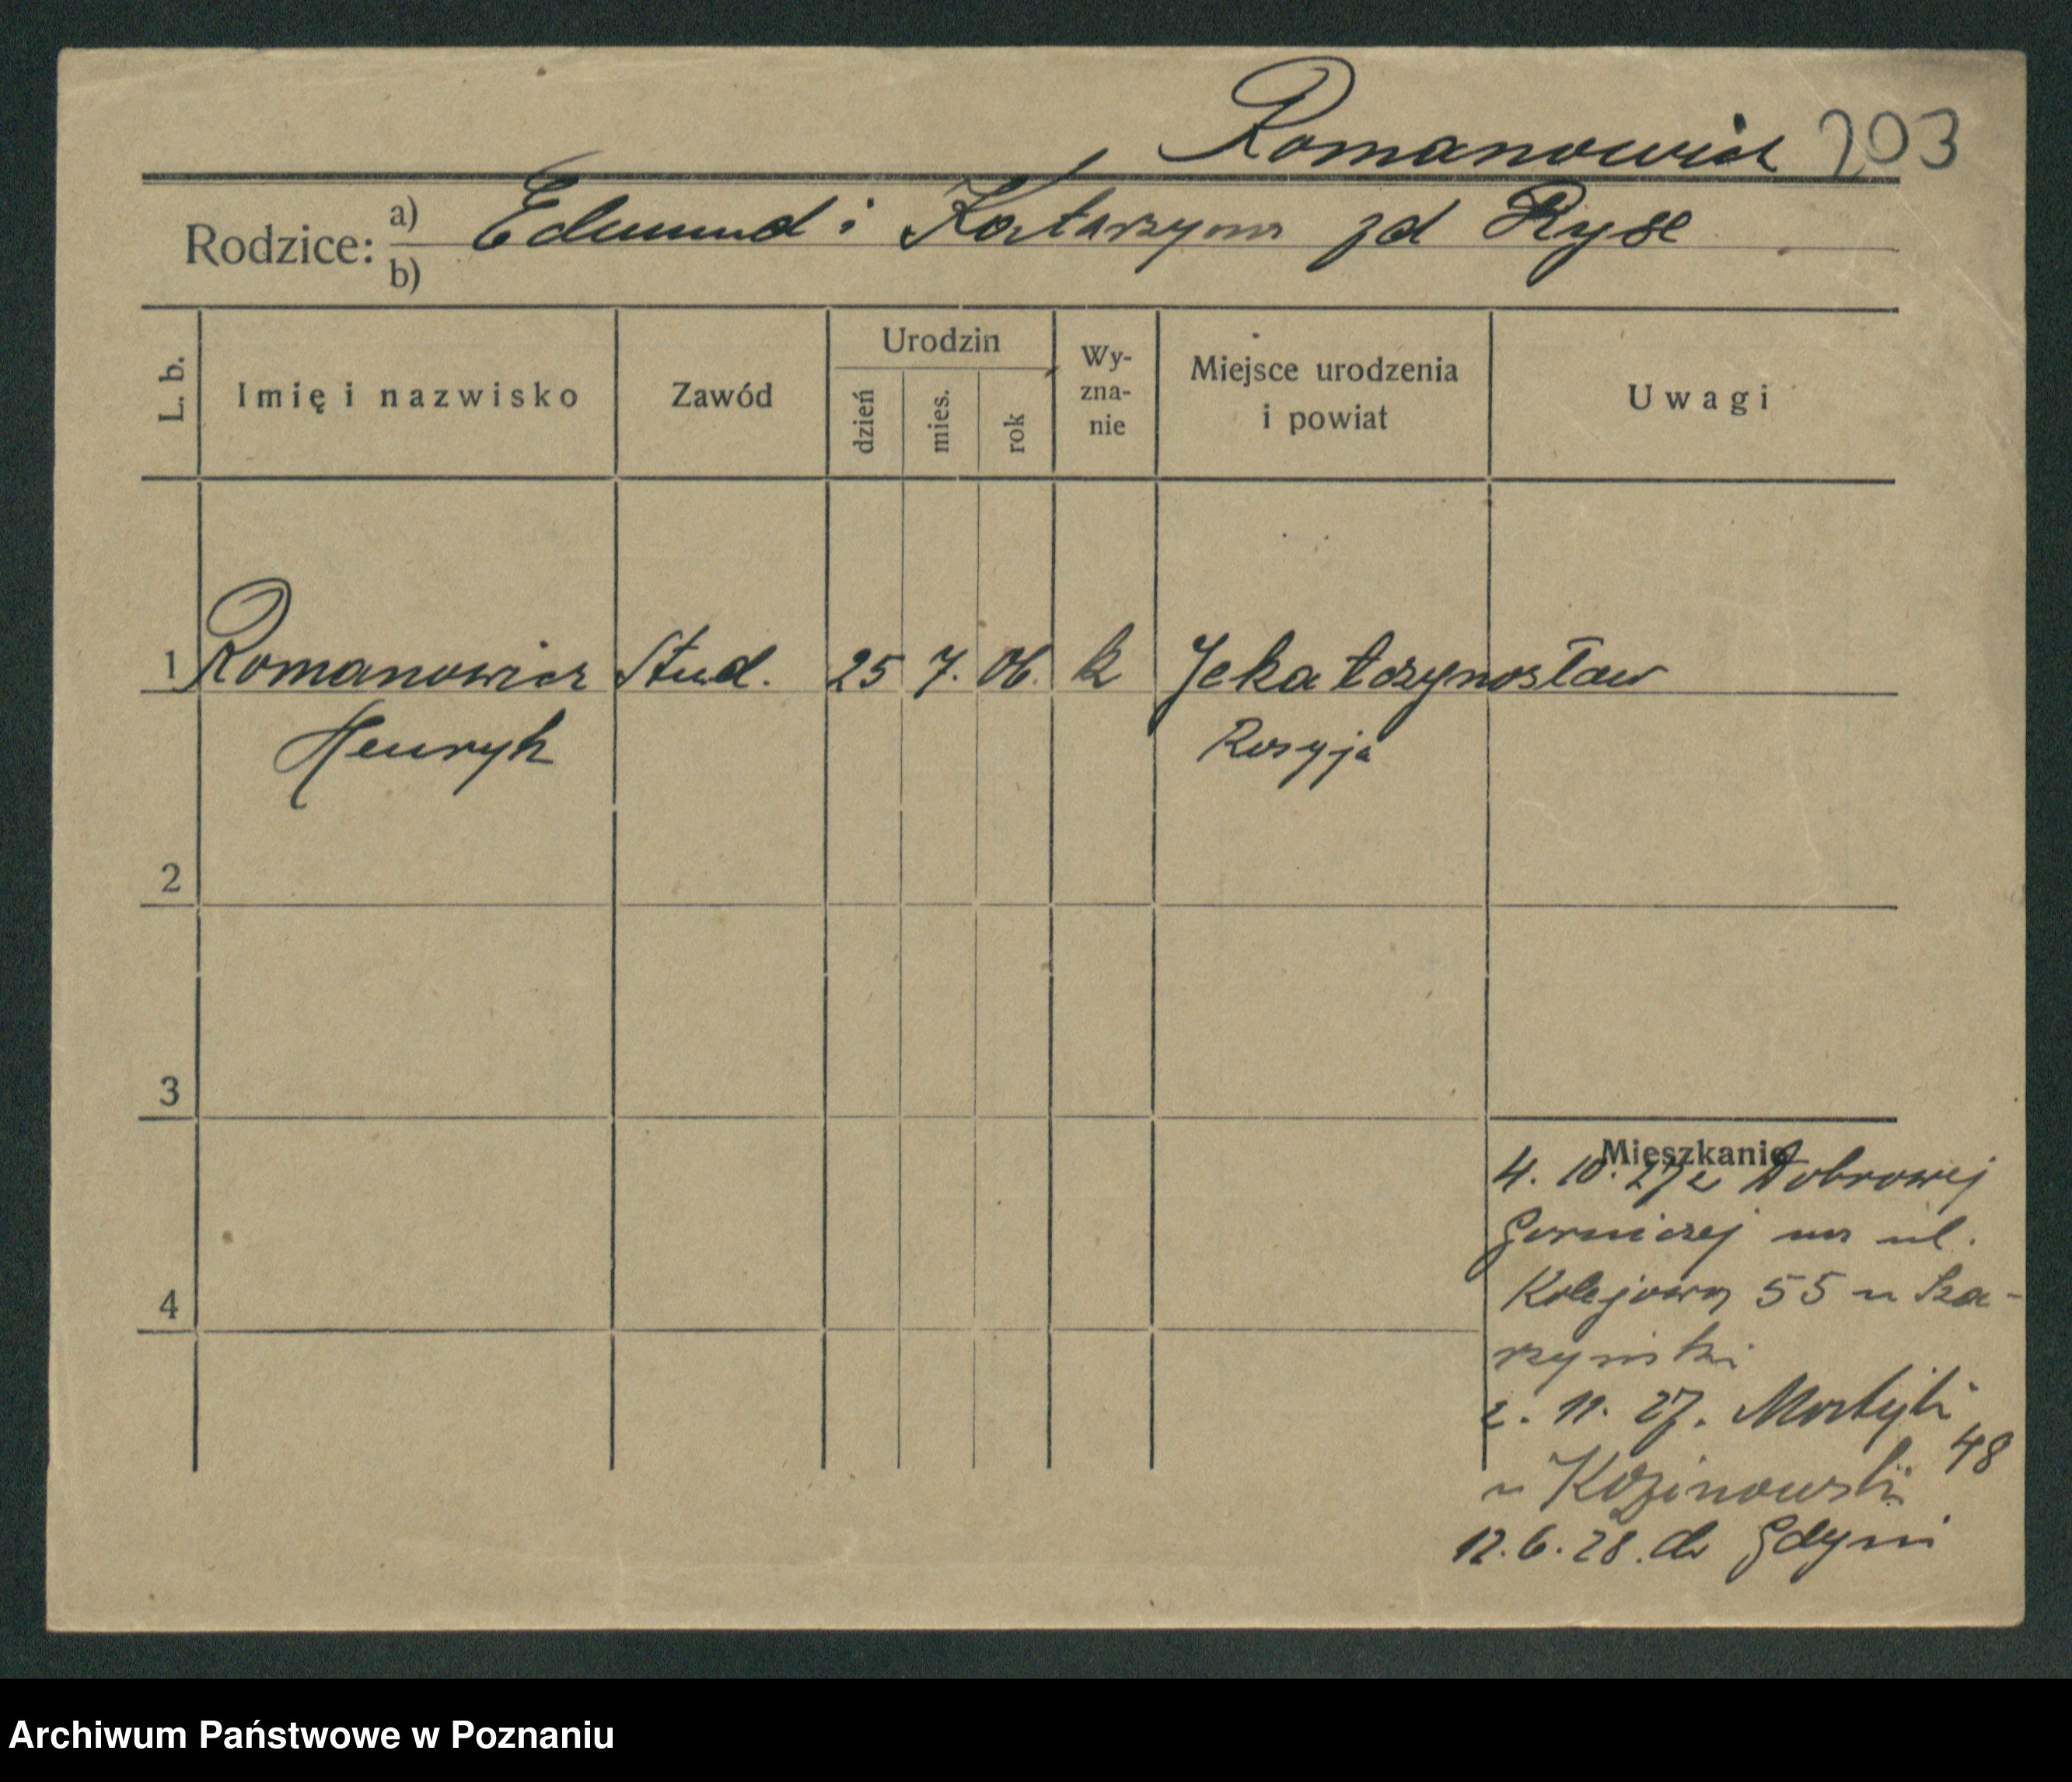 Romanowicz 203
Rodzice: a) Edmund i Katarzyna zd Ryse
b)
L. b. Imię i nazwisko Zawód Urodzin dzień mies. rok Wy-zna-nie Miejsce urodzenia i powiat Uwagi
1 Romanowicz Stud. 25 7. 06. k Jekaterynosław
Henryk Rosyja
2
3
Mieszkanie
4. 10. 27 z Dobrowej
Gorniczej na ul.
4
Kolejową 55 u
2. 11. 27.
48
u
12. 6. 28. do Gdyni
Archiwum Państwowe w Poznaniu